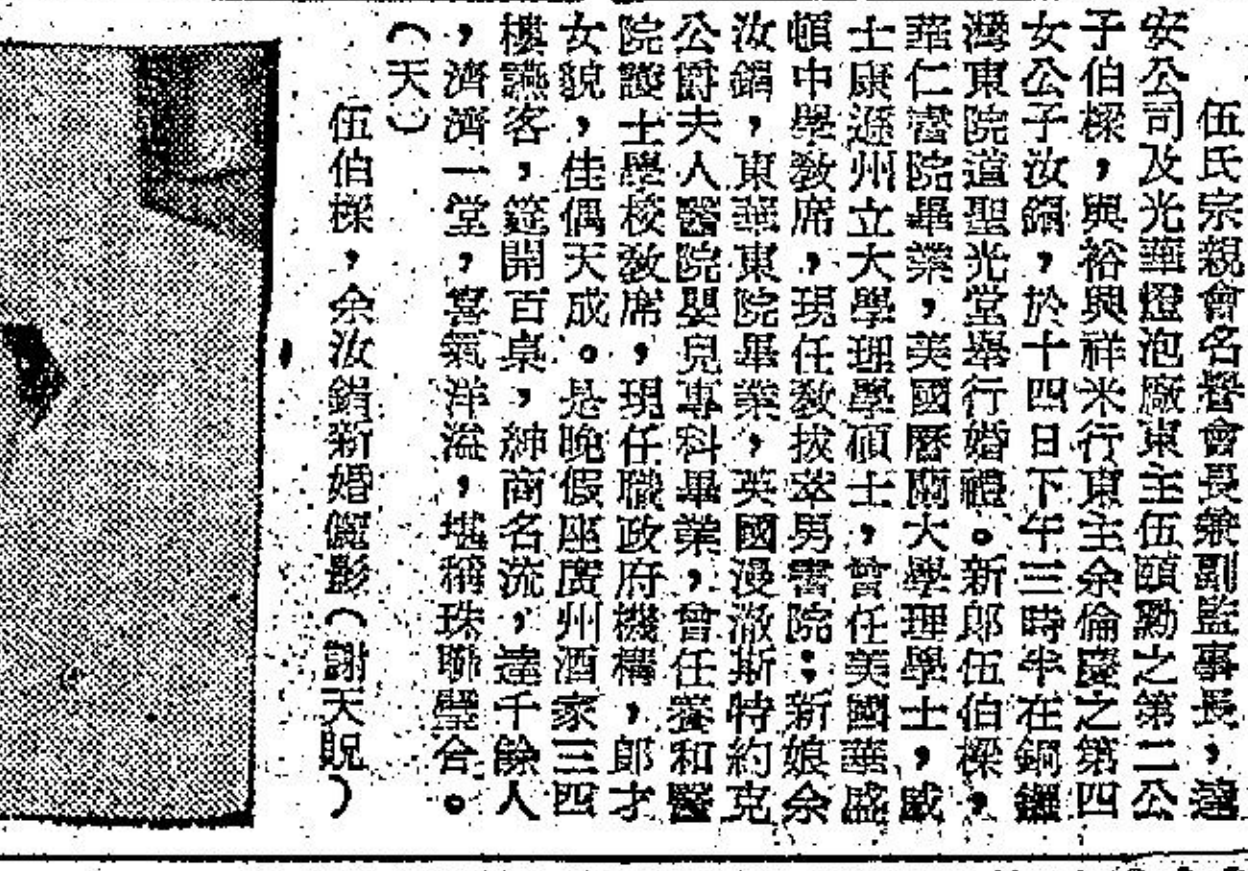 伍氏宗親會名譽會長兼副監事長,達
安公司及光華燈泡廠東主伍頤勳之第二公
子伯樑,與裕興祥米行東主余倫慶之第四
女公子汝鋗,於十四日下午三時半在銅鑼
灣東院道聖光堂舉行婚禮。新郎伍伯樑,
華仁書院畢業,美國曆蘭大學理學士,威
士康遜州立大學理學碩士,曾任美國華盛
頓中學敎席,現任敎拔萃男書院;新娘余
汝鋗,東華東院畢業,英國漫澈斯特約克
公爵夫人醫院嬰兒專科畢業,曾任養和醫
院護士學校敎席,現任職政府機構,郎才
女貌,佳偶天成。是晚假座廣州酒家三四
樓讌客,筵開百桌,紳商名流,達千餘人
,濟濟一堂,喜氣洋溢,堪稱珠聯璧合。
(天)
伍伯樑,余汝鋗新婚儷影(謝天貺)